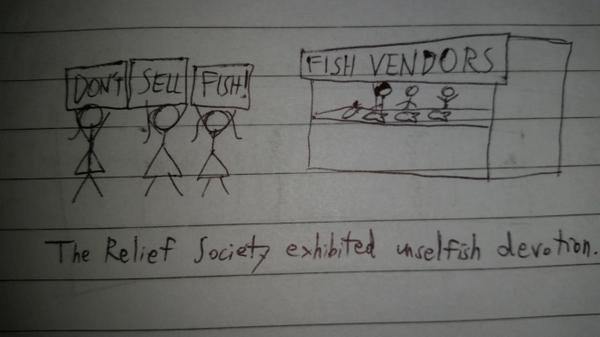 DON'T SELL FISH!
FISH VENDORS
The Relief Society exhibited unselfish devotion.